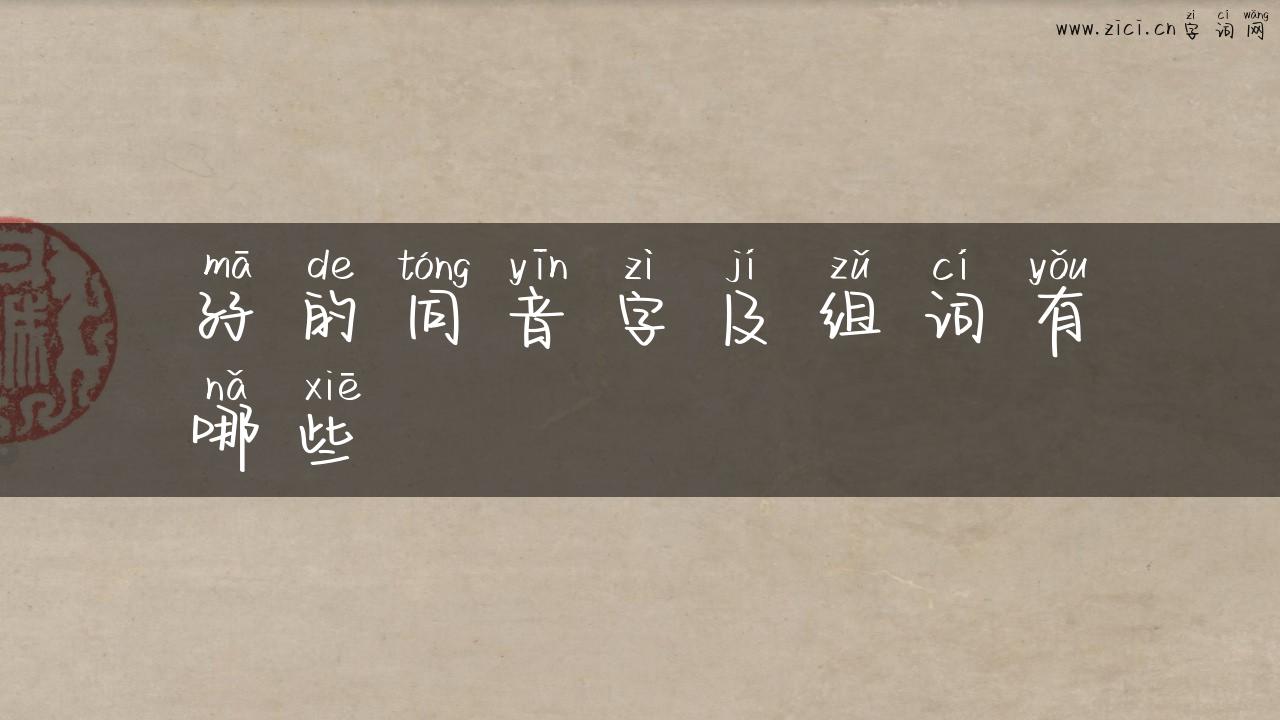 zì cí wǎng
www.zici.cn 字词网
mā de tóng yīn zì jí zǔ cí yǒu
孖的同音字及组词有
nǎ xiē
哪些